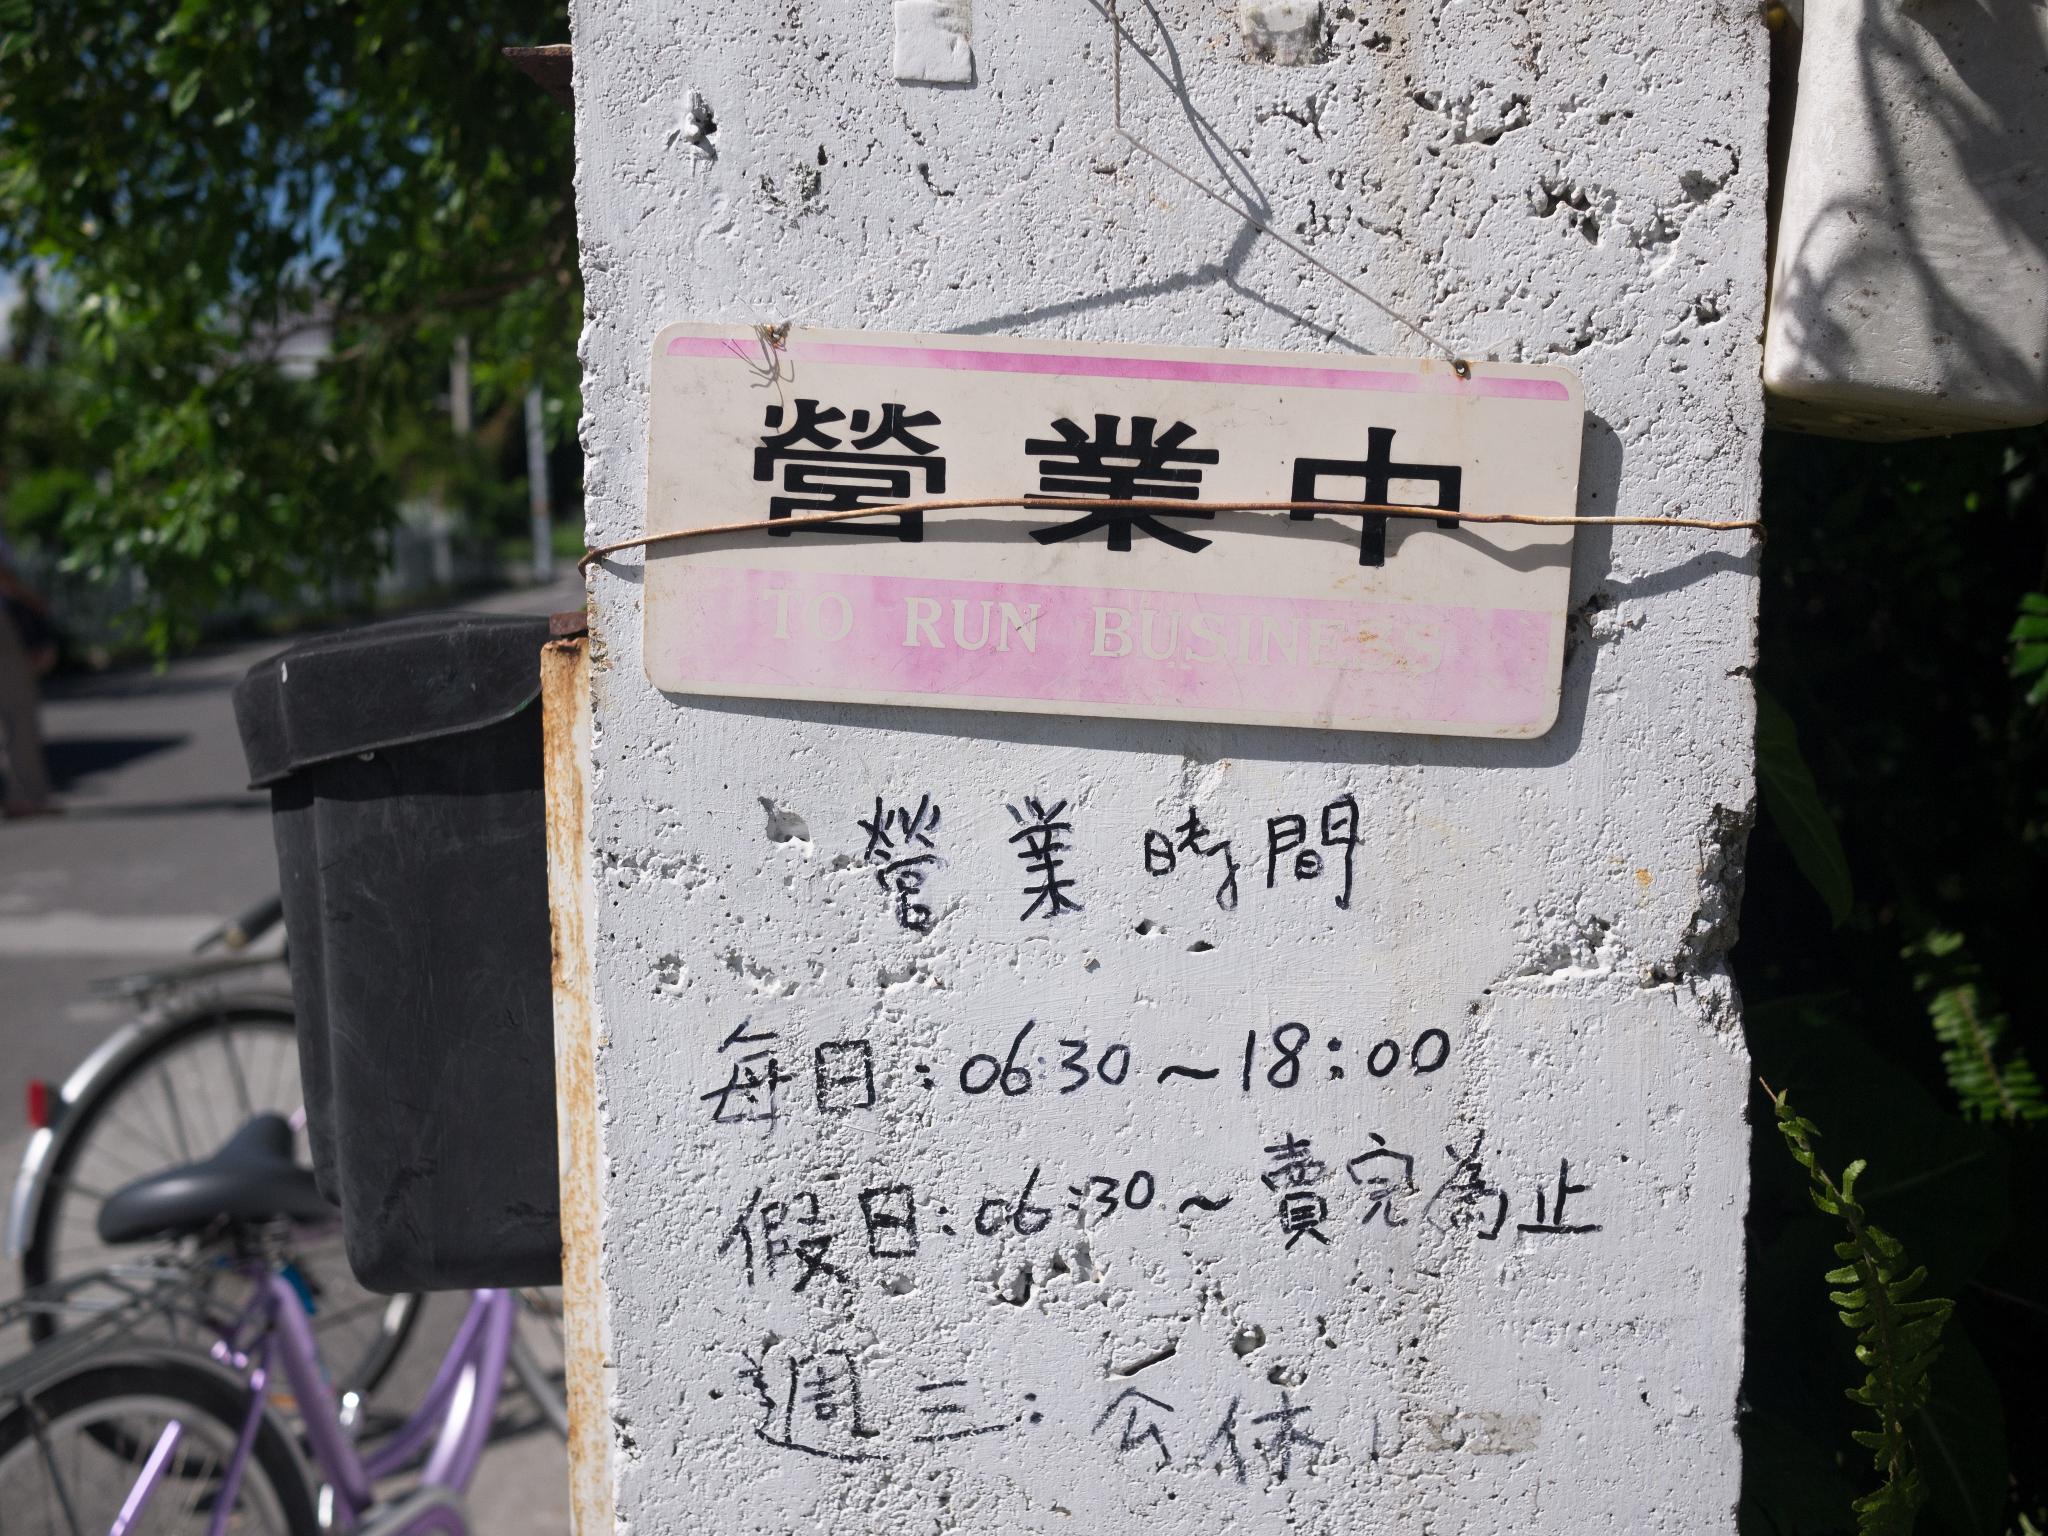 營業中
TO RUN BUSINESS
營業時間
每日:06:30~18:00
假日:06:30~賣完為止
週三:公休